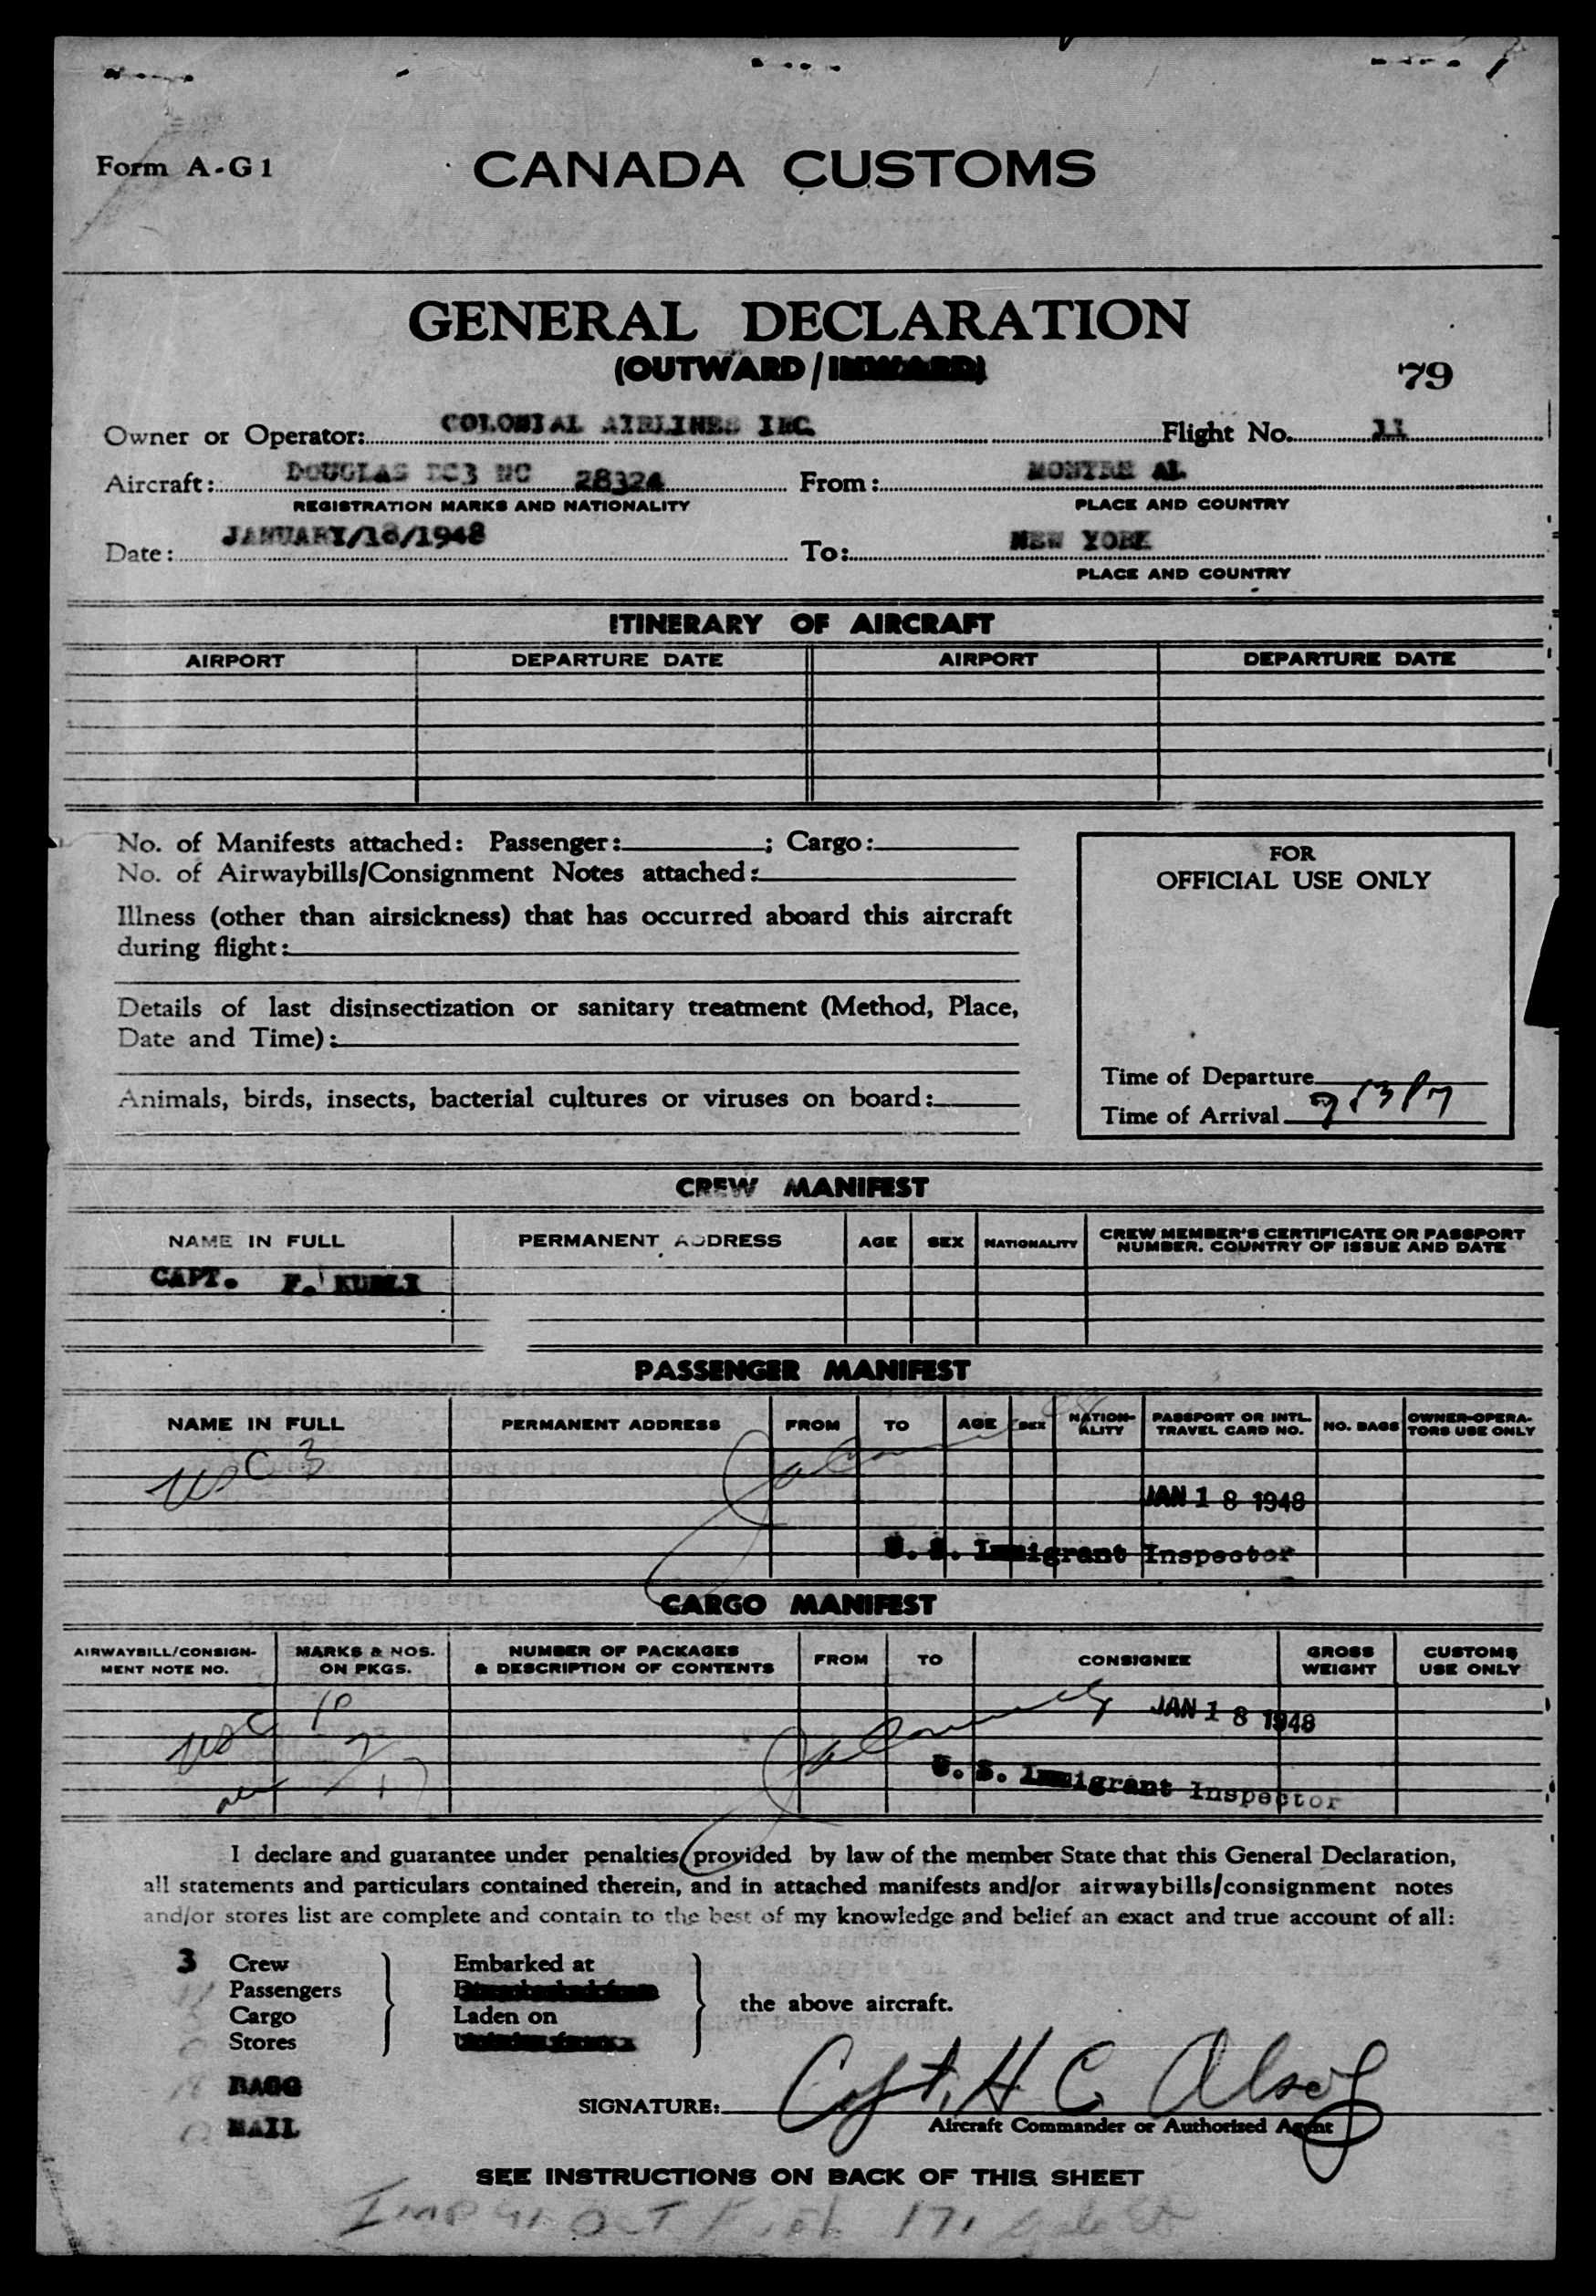 Form A-G1
CANADA CUSTOMS
GENERAL DECLARATION
(OUTWARD/INWARD)
79
Owner or Operator: COLONIAL AIRLINES INC. Flight No. 11
Aircraft: DOUGLAS DC3 NC 28324 From: MONTRE AL
REGISTRATION MARKS AND NATIONALITY PLACE AND COUNTRY
Date: JANUARY/18/1948 To: NEW YORK
PLACE AND COUNTRY
ITINERARY OF AIRCRAFT
AIRPORT DEPARTURE DATE AIRPORT DEPARTURE DATE
No. of Manifests attached: Passenger: ; Cargo:
No. of Airwaybills/Consignment Notes attached:
Illness (other than airsickness) that has occurred aboard this aircraft
during flight:
Details of last disinsectization or sanitary treatment (Method, Place,
Date and Time):
Animals, birds, insects, bacterial cultures or viruses on board:
FOR
OFFICIAL USE ONLY
Time of Departure
Time of Arrival
CREW MANIFEST
NAME IN FULL PERMANENT ADDRESS AGE SEX NATIONALITY CREW MEMBER'S CERTIFICATE OR PASSPORT
NUMBER. COUNTRY OF ISSUE AND DATE
CAPT. F. KUBLI
PASSENGER MANIFEST
NAME IN FULL PERMANENT ADDRESS FROM TO AGE SEX NATION-
ALITY PASSPORT OR INTL.
TRAVEL CARD NO. NO. BAGS OWNER-OPERA-
TORS USE ONLY
USC 3
JAN 18 1948
U. S. Immigrant Inspector
CARGO MANIFEST
AIRWAYBILL/CONSIGN-
MENT NOTE NO. MARKS & NOS.
ON PKGS. NUMBER OF PACKAGES
& DESCRIPTION OF CONTENTS FROM TO CONSIGNEE GROSS
WEIGHT CUSTOMS
USE ONLY
USC 10
JAN 18 1948
U. S. Immigrant Inspector
I declare and guarantee under penalties provided by law of the member State that this General Declaration,
all statements and particulars contained therein, and in attached manifests and/or airwaybills/consignment notes
and/or stores list are complete and contain to the best of my knowledge and belief an exact and true account of all:
3 Crew Embarked at
Passengers
Cargo Laden on
Stores
the above aircraft.
BAGG
MAIL
SIGNATURE: Capt. H C Alsop
Aircraft Commander or Authorized Agent
SEE INSTRUCTIONS ON BACK OF THIS SHEET